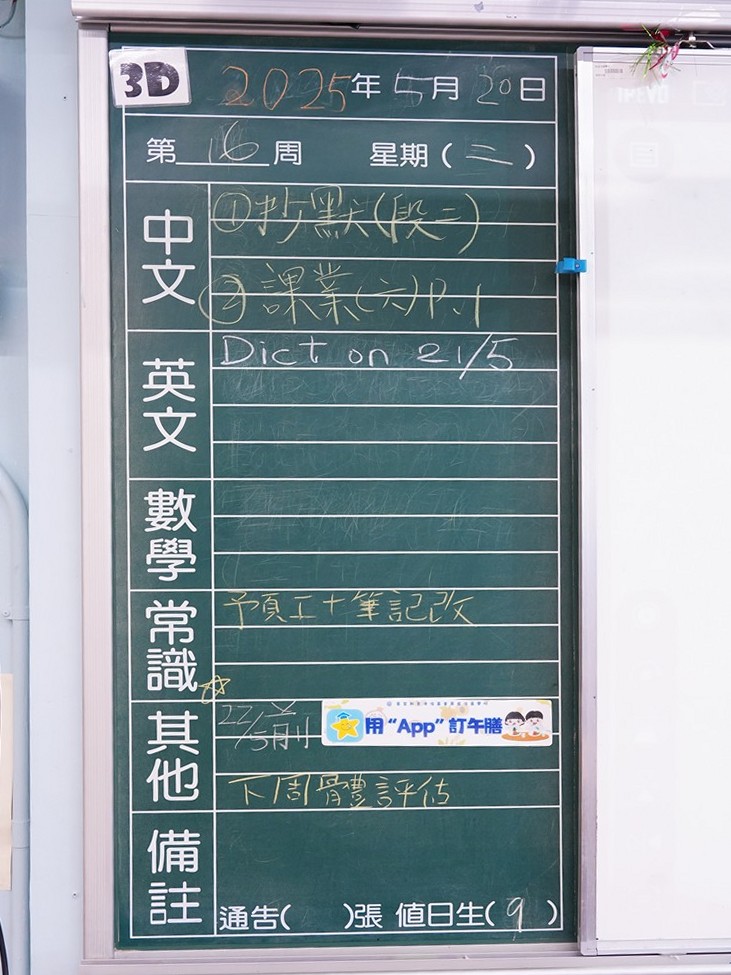 3D 2025年5月20日
第16周 星期(三)
中文
①抄默(段三)
②課業(六)P.1
英文
Dict on 21/5
數學
常識
預工+筆記改
其他
☆22/5前 用“App”訂午膳
下周體評估
備註
通告( )張 值日生(9)